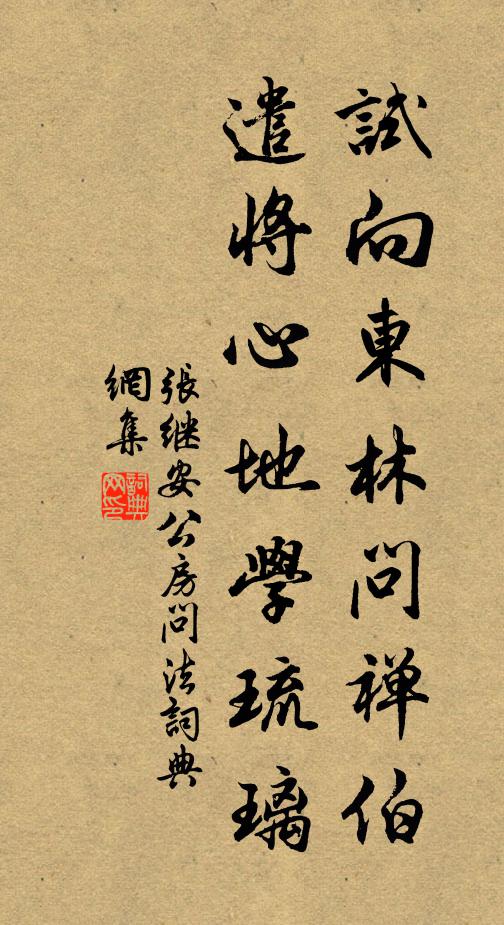 試向東林問禅伯
遣將心地學琉璃
張继安公房問法詞典
網集
詞典
网印